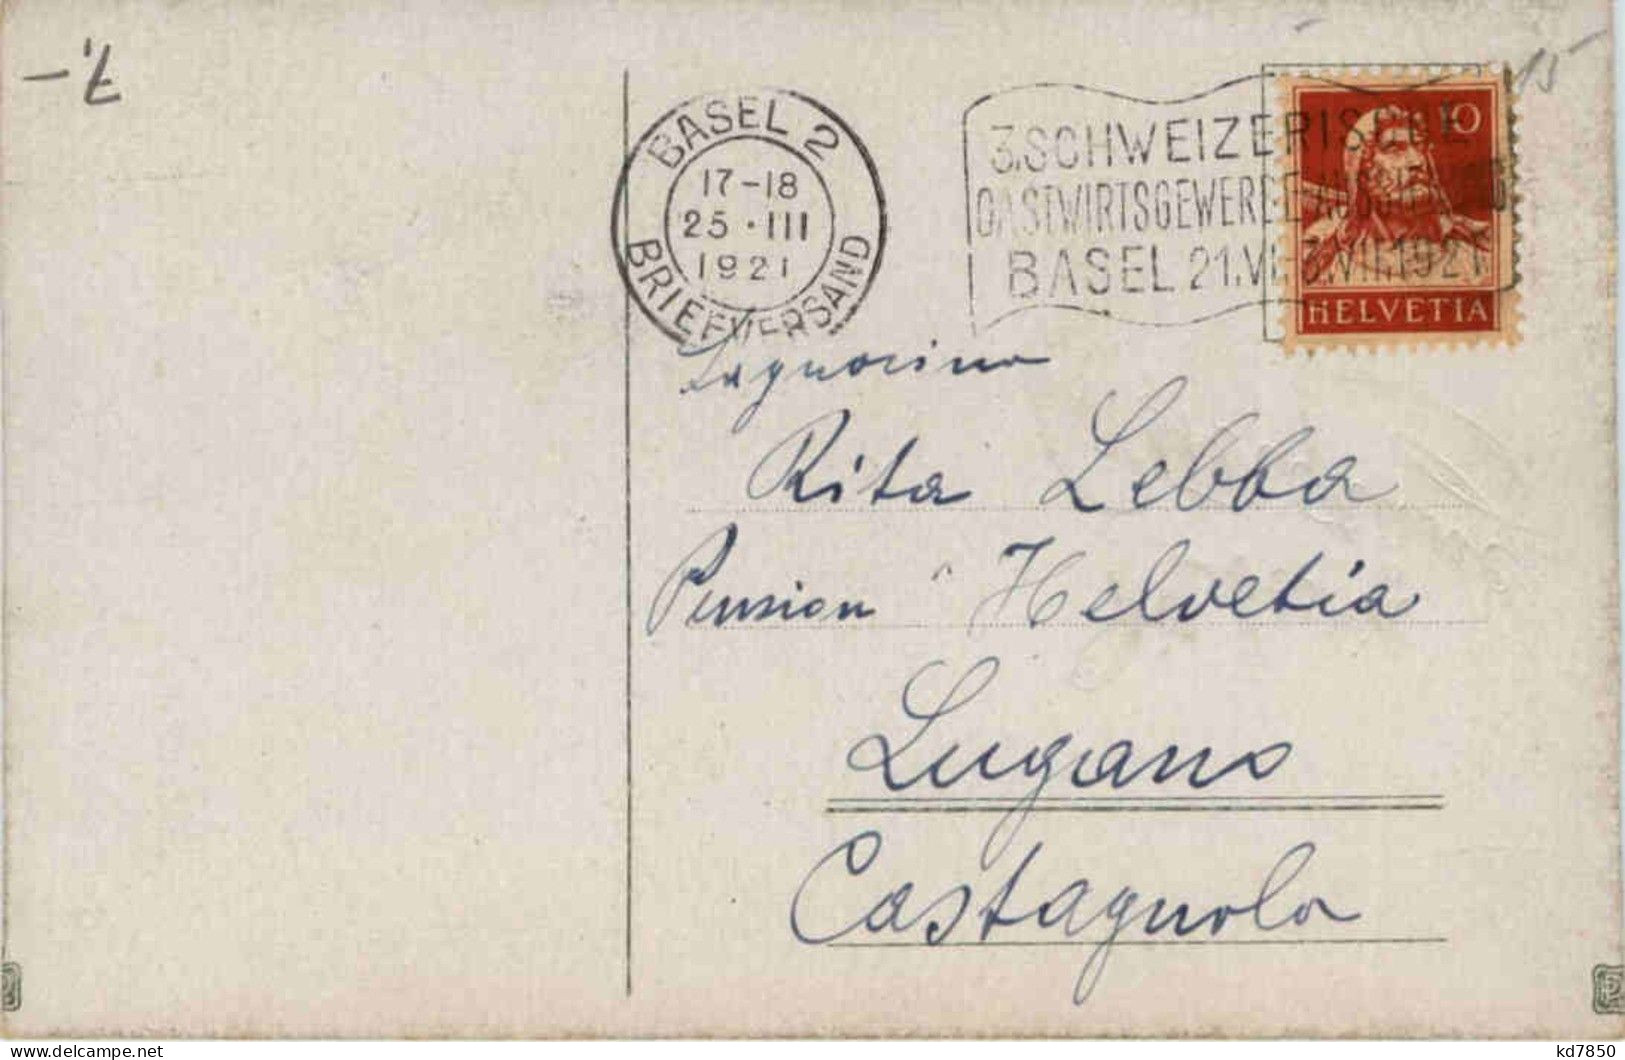 -.7
15
BASEL 2
17-18
25·III
1921
BRIEFVERSAND
3. SCHWEIZERISCHE
GASTWIRTSGEWERBE AUSSTELLUNG
BASEL 21.VI. 3.VII.1921
10
HELVETIA
Rita Lebba
Pension Helvetia
Lugano
Castagnola
kd7850